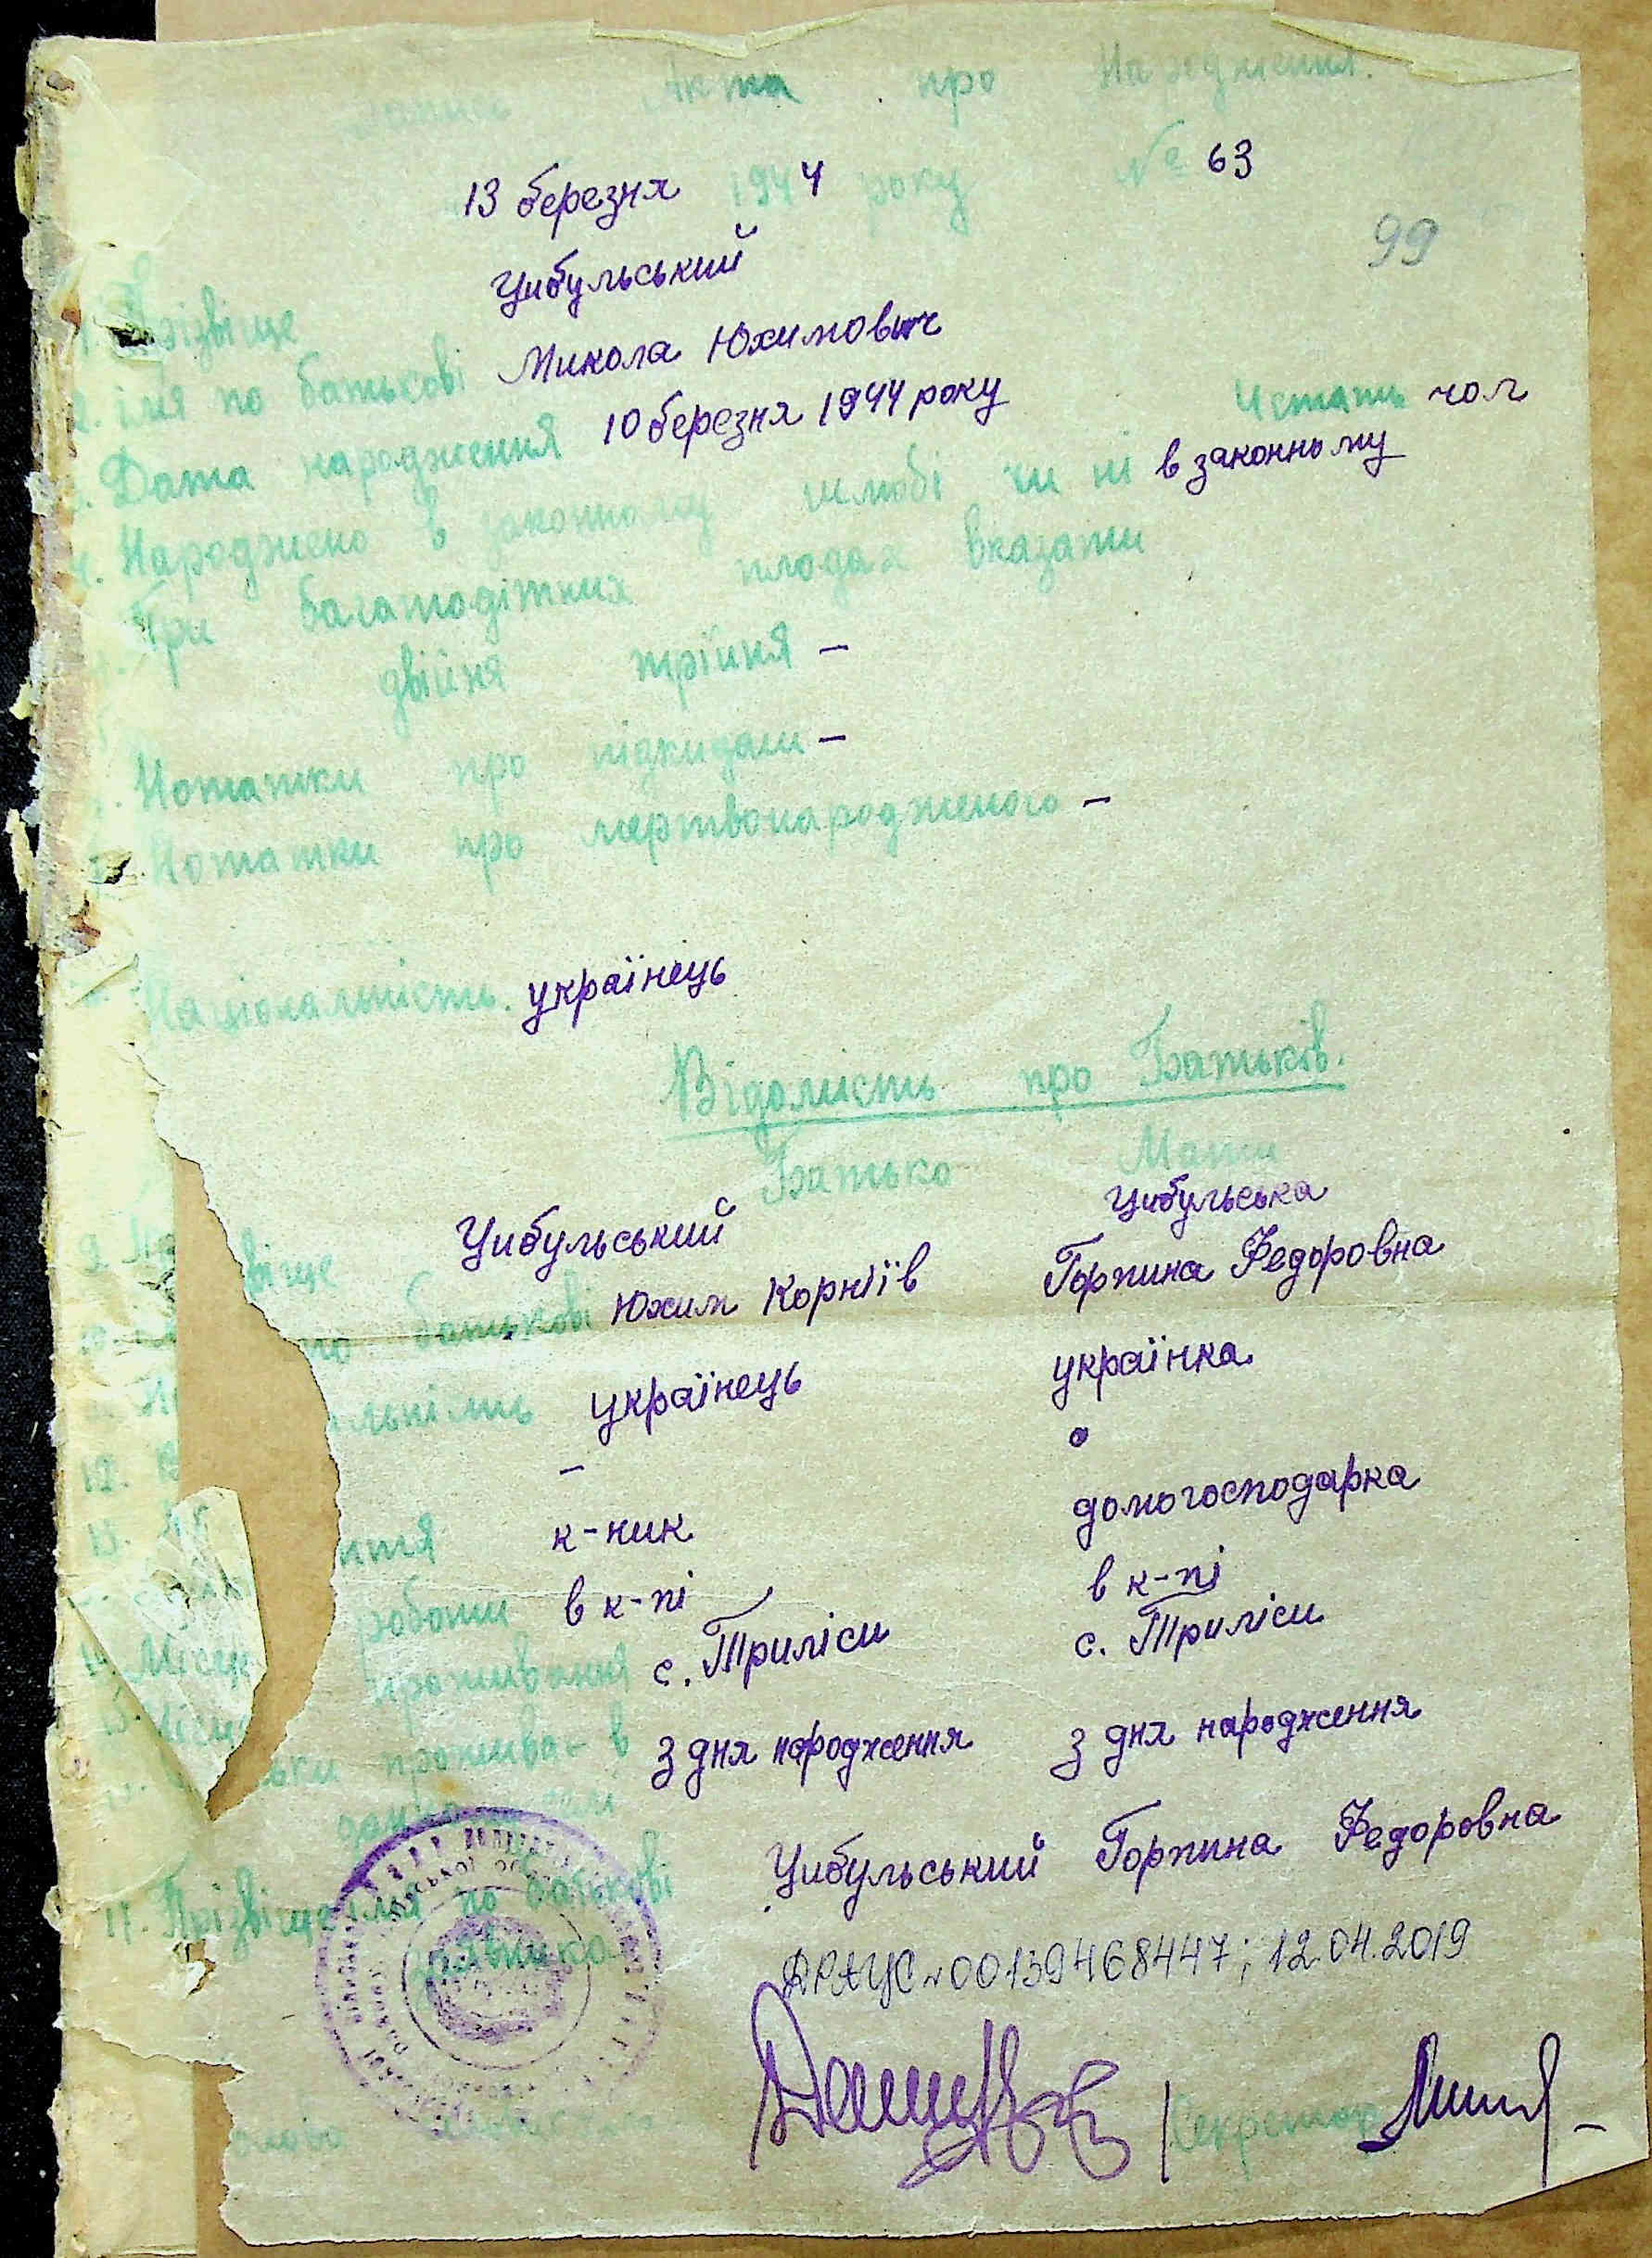 Запис Акта про Народження.
13 березня 1944 року № 63
99
1. Прізвіще Цибульський
2. імя по батькові Микола Юхимович
3. Дата народження 10 березня 1944 року Чстать чол
4. Народжено в законному шлюбі чи ні в законному
При багатодітних плодах вказати
двійня трійня –
Нотатки про підкидош –
Нотатки про мертвонародженого –
Національність. українець
Відомість про Батьків.
Батько Мати
9. Пр віще Цибульський Цибульська
по батькові Юхим Корніїв Горпина Федоровна
альність українець українка
12. –
13. ття к-ник домогосподарка
роботи в к-пі в к-пі
Місце проживання с. Триліси с. Триліси
ьки прожива- в з дня народження з дня народження
17. Прізвіще імя по батькові Цибульський Горпина Федоровна
заявника
ДРАЦС №00139468447; 12.04.2019
Секретар